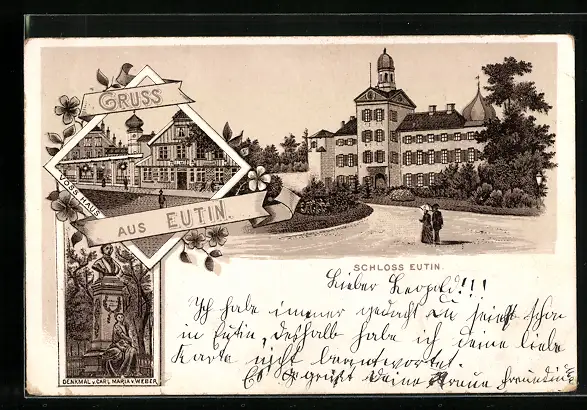 GRUSS
AUS EUTIN.
VOSS HAUS
SCHLOSS EUTIN.
DENKMAL v. CARL MARIA v. WEBER
Lieber Leopold!!!
Ich habe immer gedacht du seiest schon
in Eutin, deshalb habe ich deine liebe
Karte nicht beantwortet.
Es grüßt deine Freundin